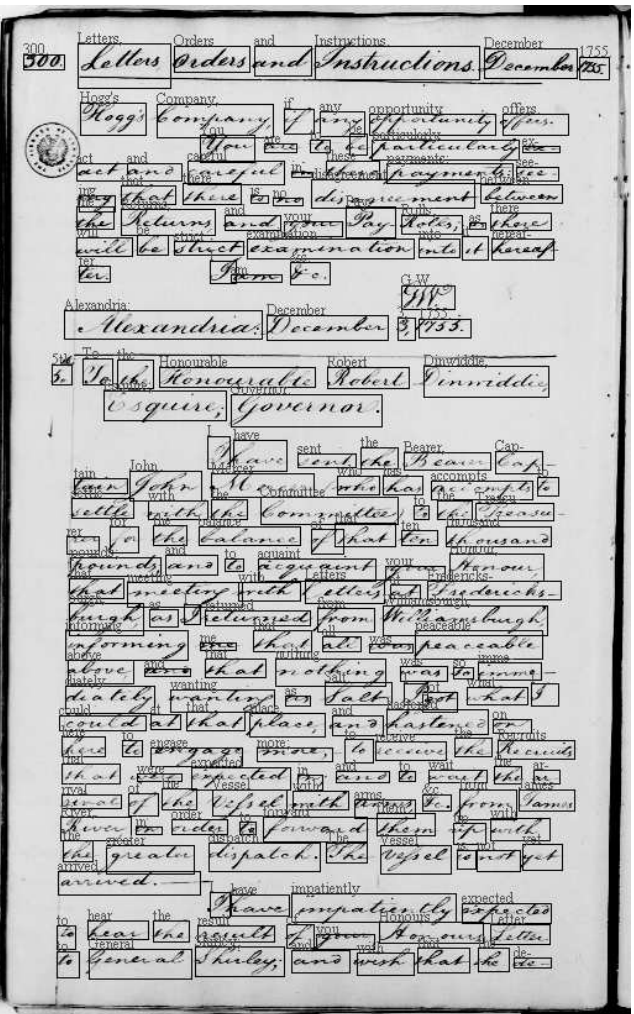 300. Letters Orders and Instructions. December 1755.
Hogg's Company, if any opportunity offers.
You are to be particularly ex-
act and careful in these payments: see-
ing that there is no disagreement between
the Returns and your Pay-Rolls; as there
will be strict examination into it hereaf-
ter. I am &c.
G.W.
Alexandria: December 3, 1755.
5. To the Honourable Robert Dinwiddie,
Esquire; Governor.
I have sent the Bearer, Cap-
tain John Mercer who has accompts to
settle with the Committee to the Treasu-
rer for the balance of that ten thousand
pounds; and to acquaint your Honour,
that meeting with Letters at Fredericks-
burgh, as I returned from Williamsburgh,
informing me that all was peaceable
above, and that nothing was so imme-
diately wanting as Salt I got what I
could at that place, and hastened on
here to engage more; to receive the Recruits
that were expected in and to wait the ar-
rival of the Vessel with arms &c. from James
River, in order to forward them up with
the greater dispatch. The Vessel is not yet
arrived.
I have impatiently expected
to hear the result of your Honours Letter
to General Shirley; and wish that the de-